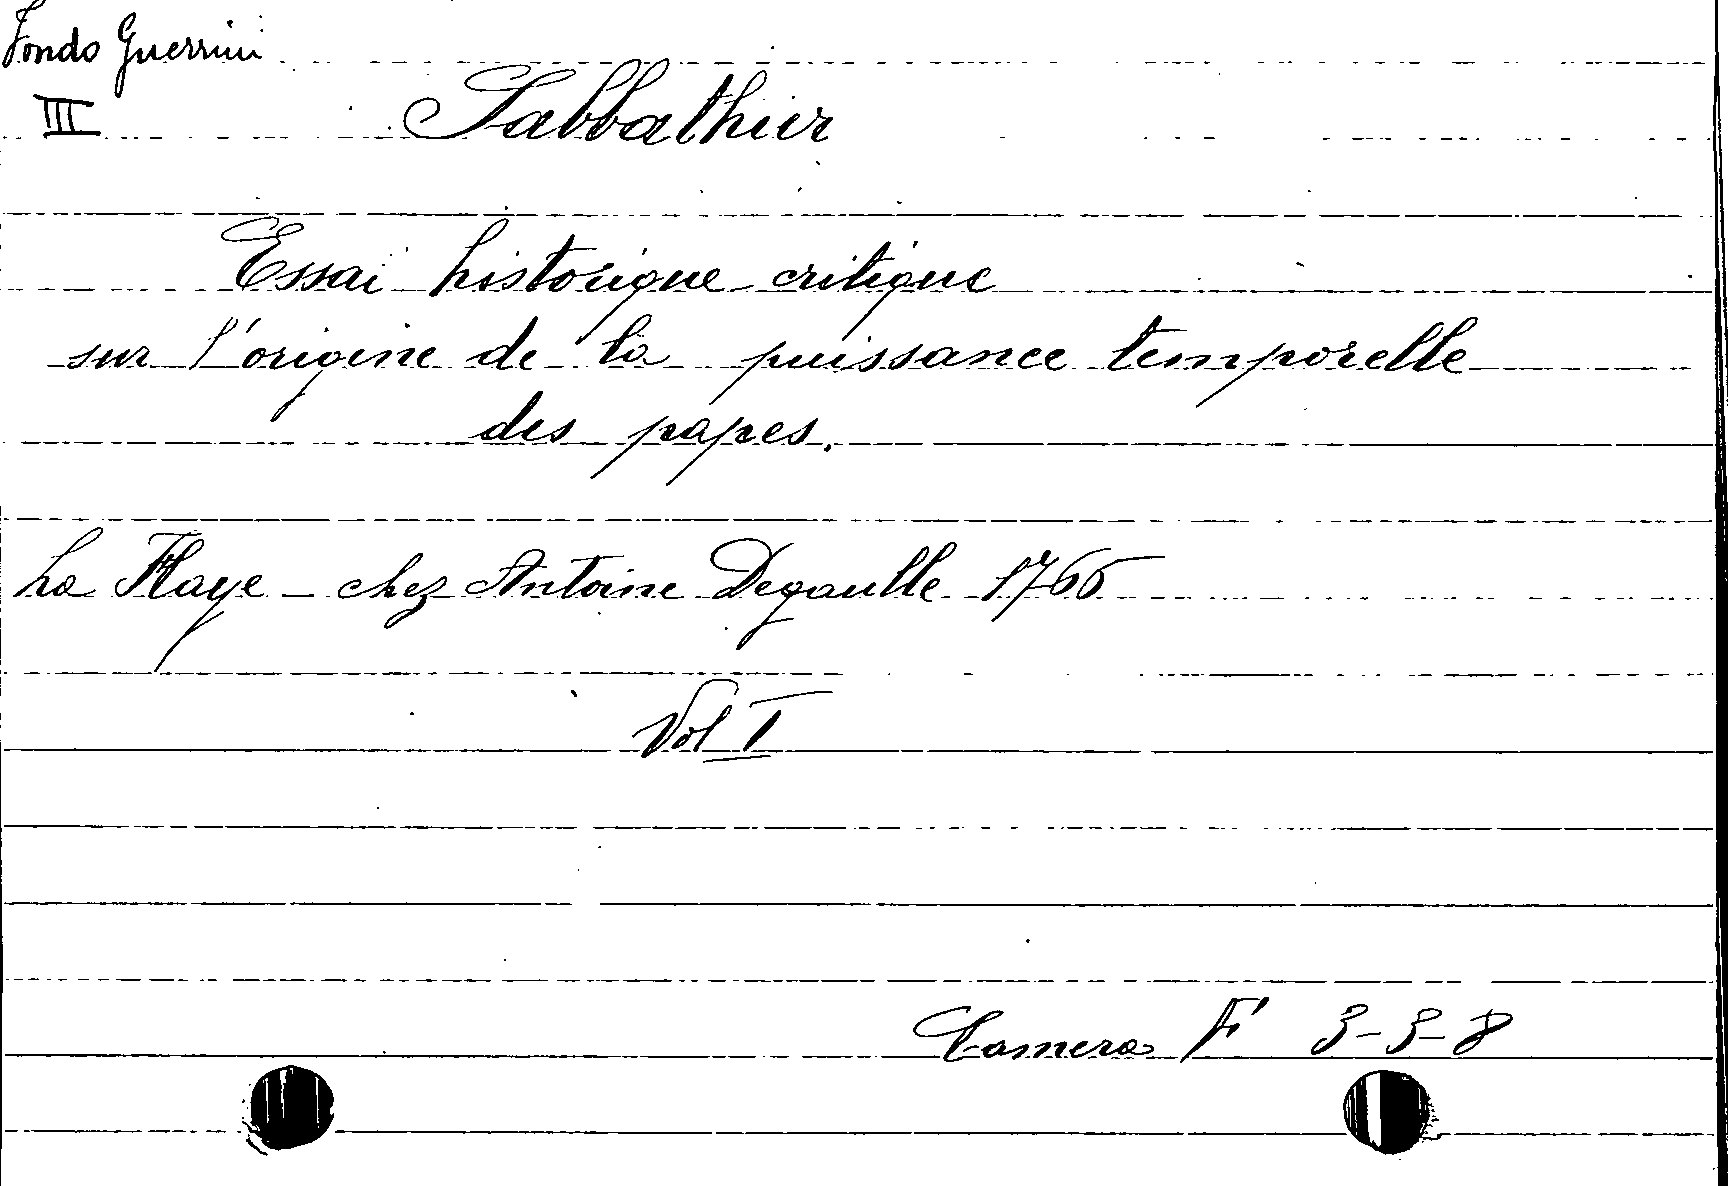 Fondo Guerrini
III
Sabbathier
Essai historique critique
sur l'origine de la puissance temporelle
des papes.
La Haye - chez Antoine Degaulle 1765
Vol I
Camera F 3-3-8